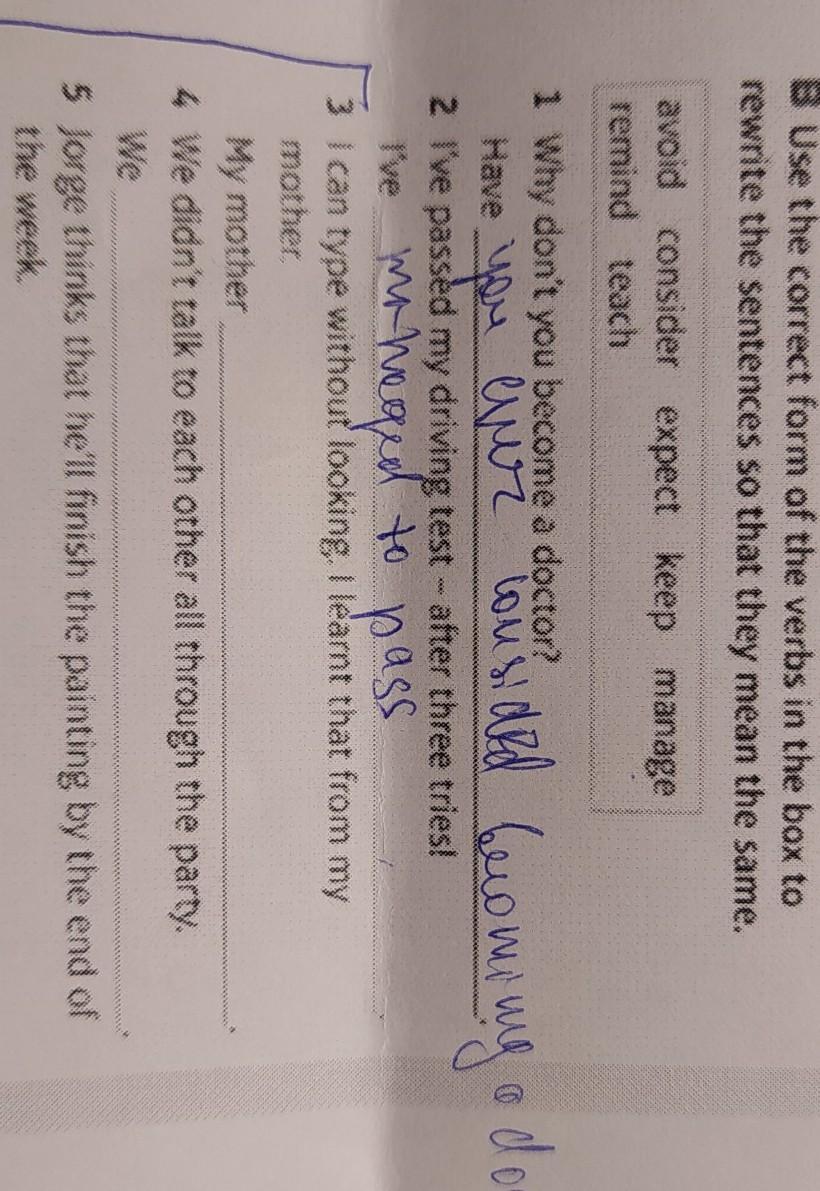 B Use the correct form of the verbs in the box to
rewrite the sentences so that they mean the same.
avoid consider expect keep manage
remind teach
1 Why don't you become a doctor?
Have you ever considered becoming a do
2 I've passed my driving test – after three tries!
I've managed to pass
3 I can type without looking. I learnt that from my
mother.
My mother .
4 We didn't talk to each other all through the party.
We .
5 Jorge thinks that he'll finish the painting by the end of
the week.